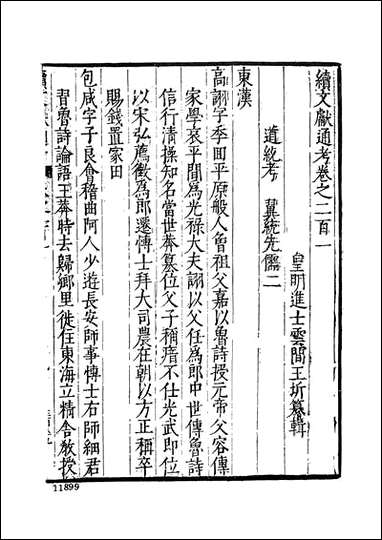 續文獻通考卷之二百一
皇明進士雲間王圻纂輯
道統考　翼統先儒二
東漢
高詡字季回平原般人曾祖父嘉以魯詩授元帝父容傳
家學哀平間為光祿大夫詡以父任為郎中世傳魯詩
信行清操知名當世莽篡位父子稱瘖不仕光武即位
以宋弘薦徵為郎遷博士拜大司農在朝以方正稱卒
賜錢置冢田
包咸字子良會稽曲阿人少遊長安師事博士右師細君
習魯詩論語王莽時去歸鄉里徙住東海立精舍教授
11899